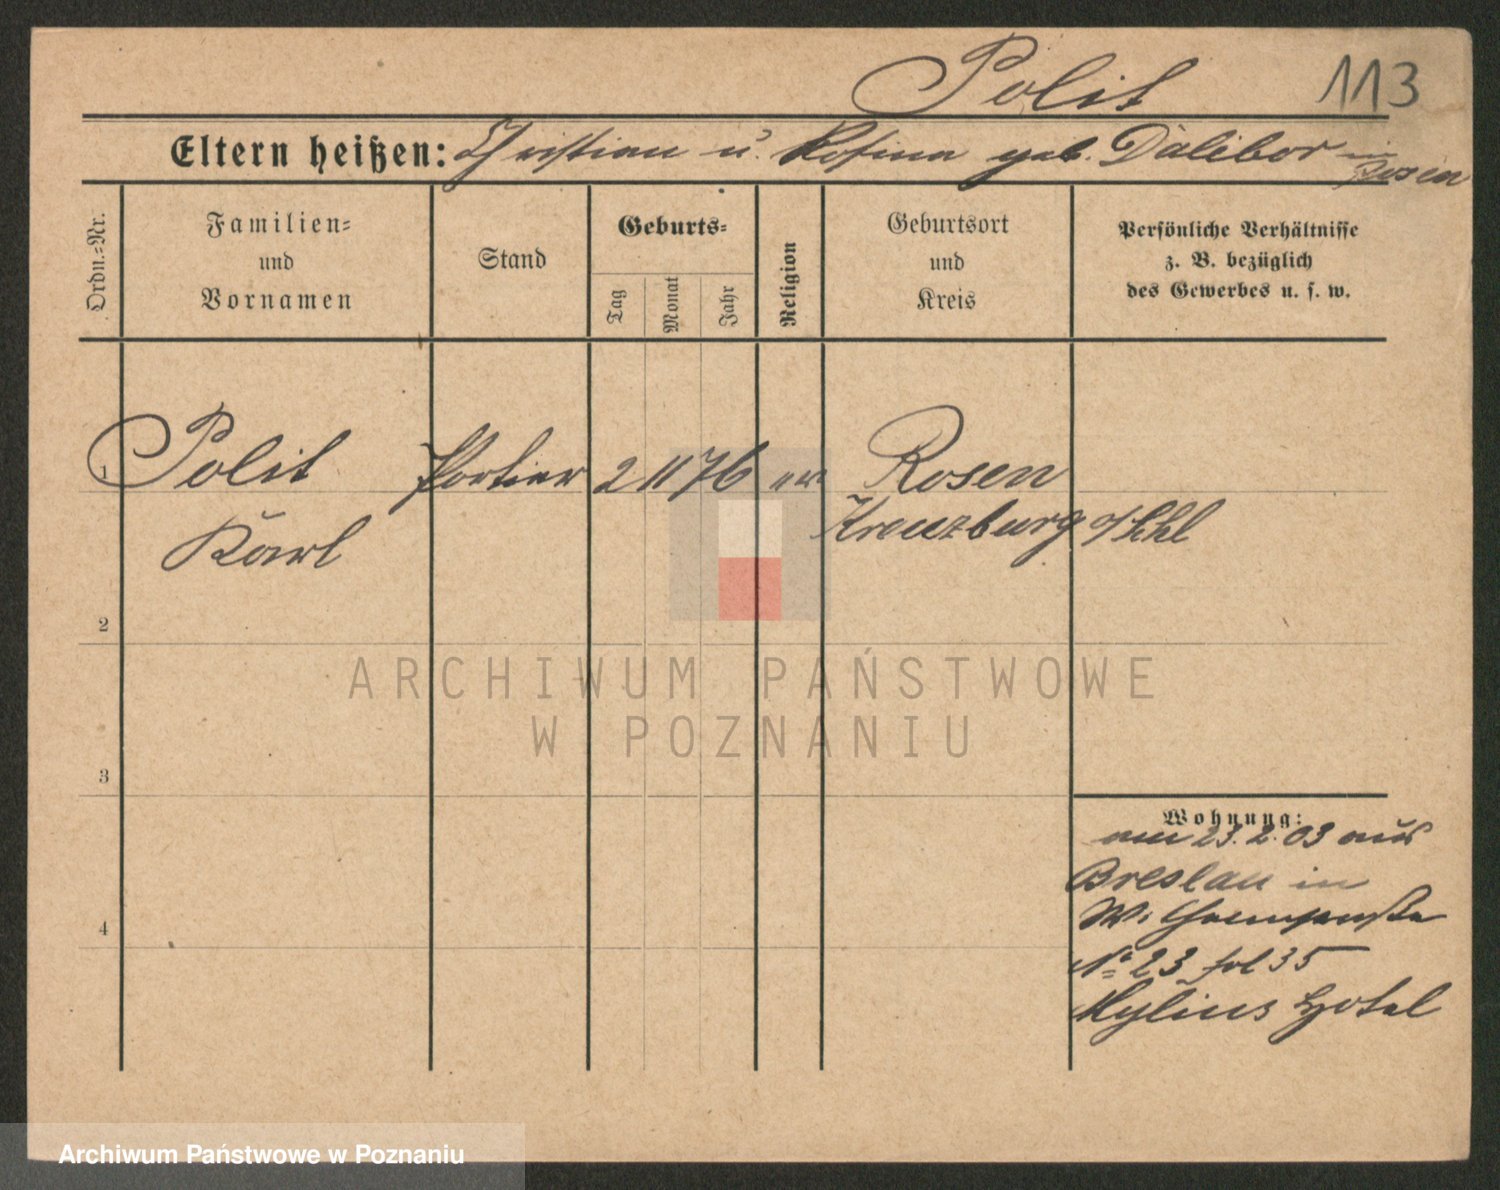 Polit 113
Eltern heißen: Christian u. Rosina geb. Dalibor in Rosen
Ordn.=Nr.
Familien=
und
Vornamen
Stand
Geburts=
Tag
Monat
Jahr
Religion
Geburtsort
und
Kreis
Persönliche Verhältnisse
z. B. bezüglich
des Gewerbes u. s. w.
1 Polit Portier 2 11 76 ev Rosen
Karl Kreuzburg O/Schl
2
3
4
Wohnung:
am 23.2.03 aus
Breslau in
No 23 fol 35
Mylius Hotel
ARCHIWUM PAŃSTWOWE
W POZNANIU
Archiwum Państwowe w Poznaniu